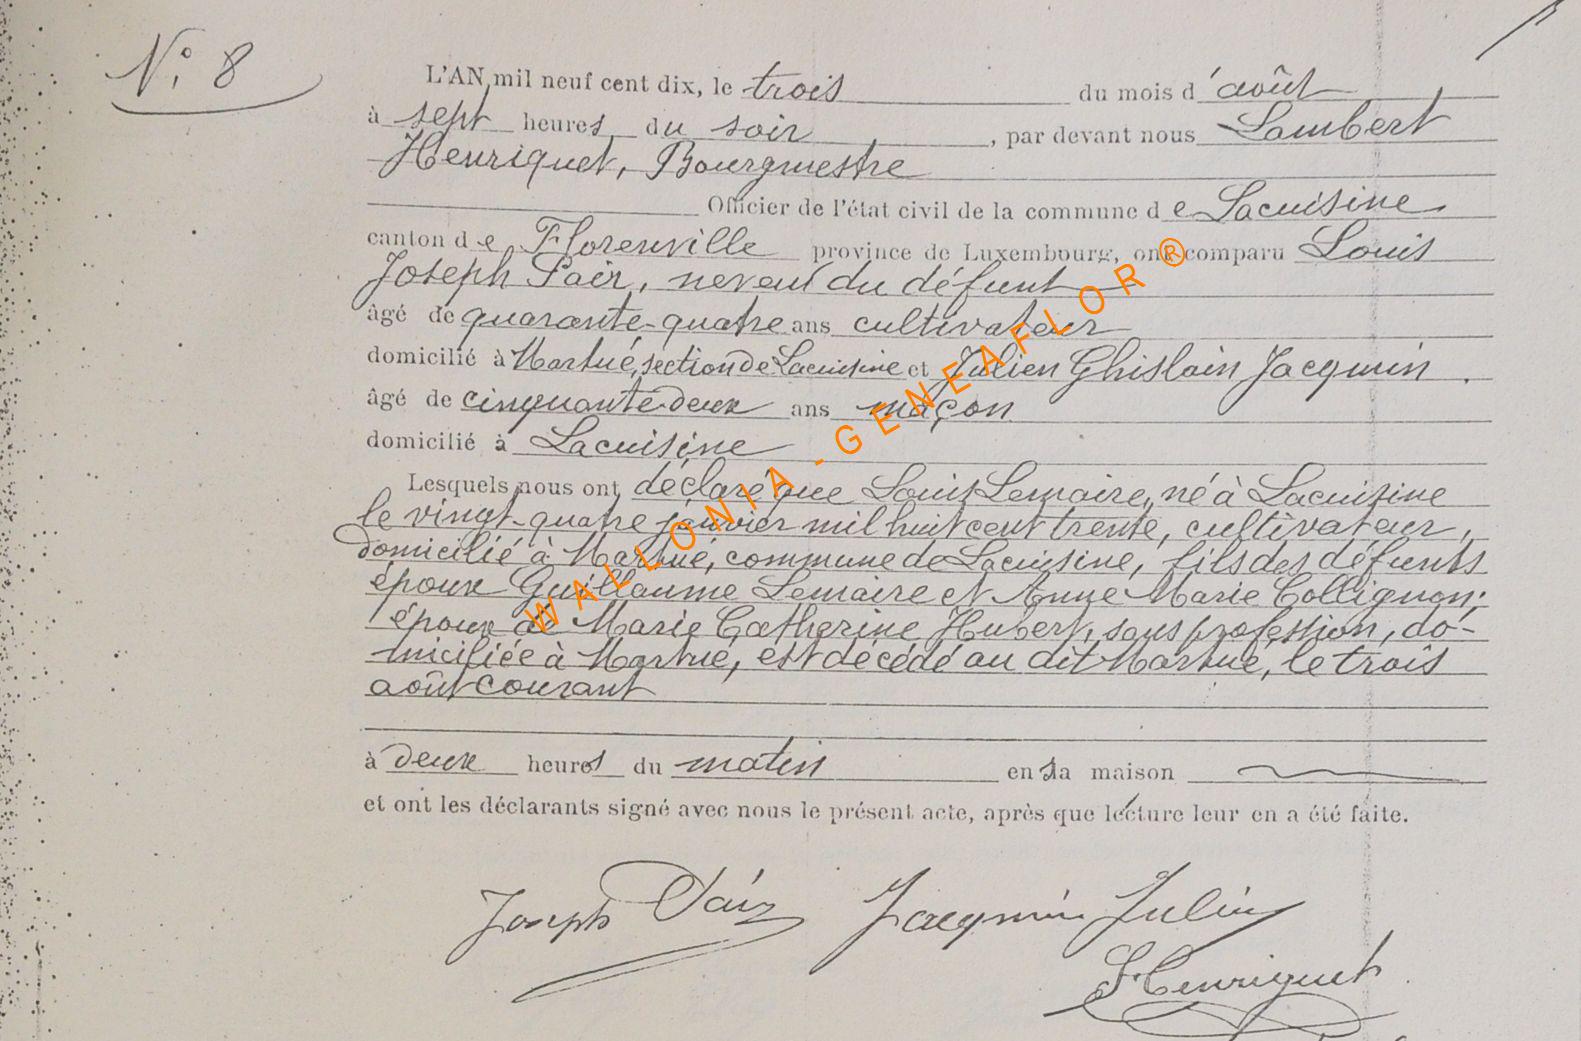 N° 8
L'AN mil neuf cent dix, le trois du mois d'août
à sept heures du soir, par devant nous Lambert
Henriquet, Bourgmestre
Officier de l'état civil de la commune de Lacuisine
canton de Florenville province de Luxembourg, ont comparu Louis
Joseph Pair, neveu du défunt
âgé de quarante-quatre ans cultivateur
domicilié à Martué, section de Lacuisine et Julien Ghislain Jacqmin
âgé de cinquante-deux ans maçon
domicilié à Lacuisine
Lesquels nous ont déclaré que Louis Lemaire, né à Lacuisine
le vingt-quatre janvier mil huit cent trente, cultivateur,
domicilié à Martué, commune de Lacuisine, fils des défunts
époux Guillaume Lemaire et Anne Marie Collignon;
époux de Marie Catherine Hubert, sans profession, do-
miciliée à Martué, est décédé au dit Martué, le trois
août courant
à deux heures du matin en sa maison
et ont les déclarants signé avec nous le présent acte, après que lecture leur en a été faite.
Joseph Jacqmin Julien
L. Henriquet
WALLONIA-GENEAFLOR®